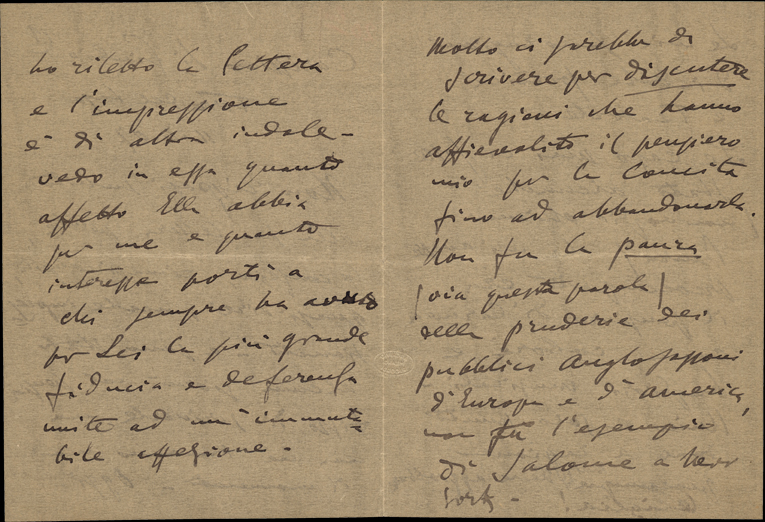 ho riletto la lettera
e l'impressione
è di altra indole -
vedo in essa quanto
affetto Ella abbia
per me e quanto
interesse porti a
chi sempre ha avuto
per Lei la più grande
fiducia e deferenza
unite ad un'immuta-
bile affezione -
Molto ci sarebbe da
scrivere per discutere
le ragioni che hanno
affievolito il pensiero
mio per la Conchita
fino ad abbandonarla.
Non fu la paura
(via questa parola)
della pruderie dei
pubblici Anglosassoni
d'Europa e d'America,
non fu l'esempio
di Salome a New
York -